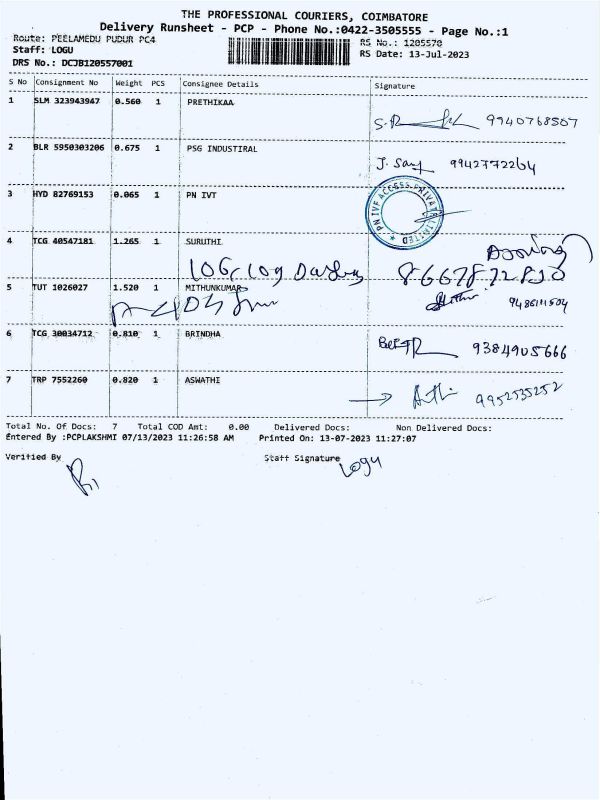 THE PROFESSIONAL COURIERS, COIMBATORE
Delivery Runsheet - PCP - Phone No.:0422-3505555 - Page No.:1
Route: PEELAMEDU PUDUR PC4
RS No.: 1205570
Staff: LOGU
RS Date: 13-Jul-2023
DRS No.: DCJB120557001
S No Consignment No Weight PCS Consignee Details Signature
1 SLM 323943947 0.560 1 PRETHIKAA
9940768507
2 BLR 5950303206 0.675 1 PSG INDUSTIRAL
9942772264
3 HYD 82769153 0.065 1 PN IVT
PN IVF ACCESS PRIVATE LIMITED
4 TCG 40547181 1.265 1 SURUTHI
5 TUT 1026027 1.520 1 MITHUNKUMAR
9486111504
6 TCG 30034712 0.810 1 BRINDHA
9384905666
7 TRP 7552260 0.820 1 ASWATHI
9952535252
Total No. Of Docs: 7 Total COD Amt: 0.00 Delivered Docs: Non Delivered Docs:
Entered By :PCPLAKSHMI 07/13/2023 11:26:58 AM Printed On: 13-07-2023 11:27:07
Verified By Staff Signature
Logu